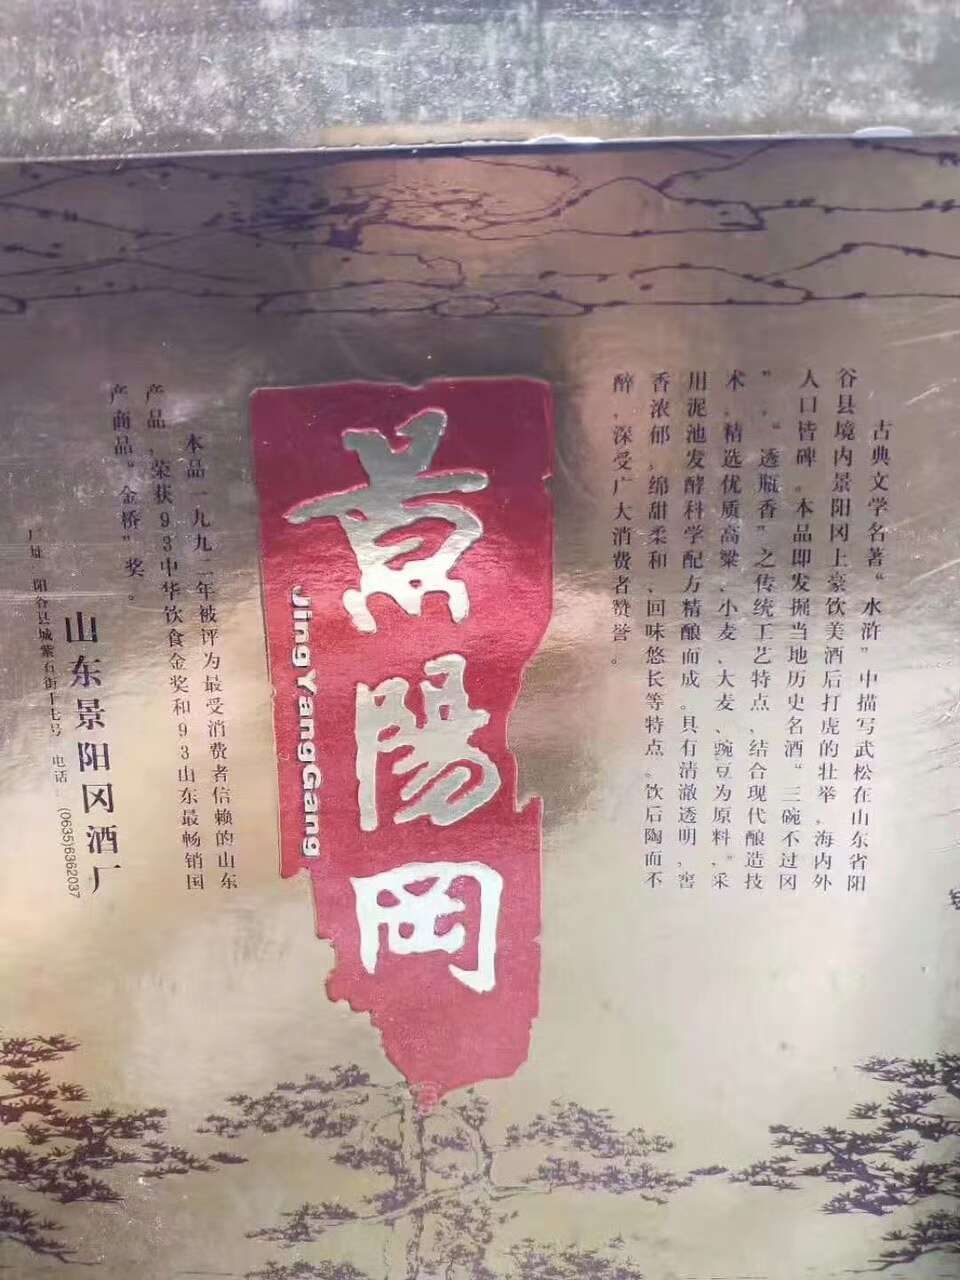 古典文学名著“水浒”中描写武松在山东省阳
谷县境内景阳冈上豪饮美酒后打虎的壮举，海内外
人口皆碑。本品即发掘当地历史名酒“三碗不过冈
”，“透瓶香”之传统工艺特点，结合现代酿造技
术，精选优质高粱、小麦、大麦、豌豆为原料，采
用泥池发酵科学配方精酿而成。具有清澈透明，窖
香浓郁，绵甜柔和、回味悠长等特点。饮后陶而不
醉，深受广大消费者赞誉。
景陽岡
JingYangGang
本品一九九二年被评为最受消费者信赖的山东
产品，荣获93中华饮食金奖和93山东最畅销国
产商品“金桥”奖。
山东景阳冈酒厂
厂址：阳谷县城紫石街十七号 电话：(0635)6362037